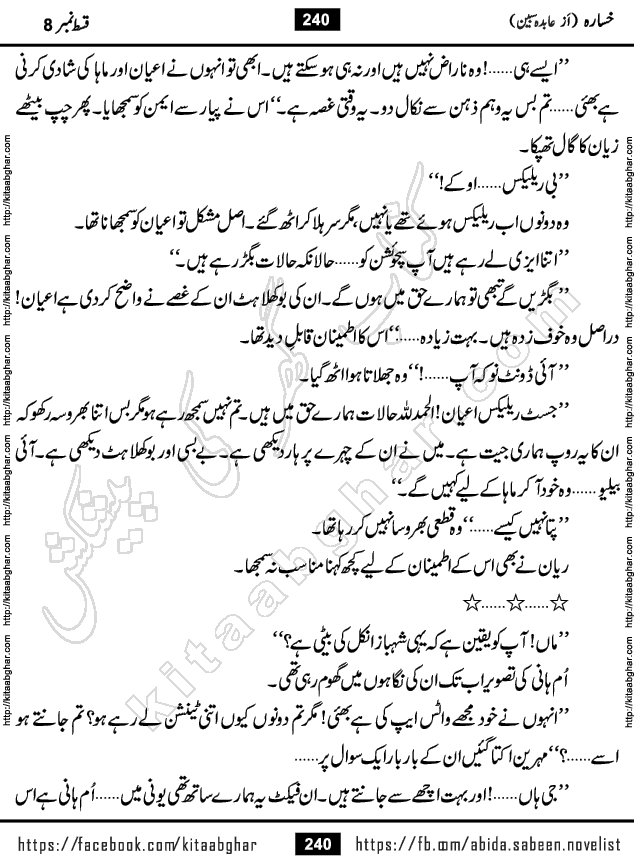 خسارہ (از عابدہ سبین)
240
قسط نمبر 8
’’ایسے ہی......! وہ ناراض نہیں ہیں اور نہ ہی ہو سکتے ہیں۔ ابھی تو انہوں نے اعیان اور ماہا کی شادی کرنی
ہے بھئی......تم بس یہ وہم ذہن سے نکال دو۔ یہ وقتی غصہ ہے۔‘‘ اس نے پیار سے ایمن کو سمجھایا۔ پھر چپ بیٹھے
زیان کا گال تھپکا۔
’’بی ریلیکس......اوکے!‘‘
وہ دونوں اب ریلیکس ہوئے تھے یا نہیں، مگر سر ہلا کر اٹھ گئے۔ اصل مشکل تو اعیان کو سمجھانا تھا۔
’’اتنا ایزی لے رہے ہیں آپ سچوئشن کو......حالانکہ حالات بگڑ رہے ہیں۔‘‘
’’بگڑیں گے تبھی تو ہمارے حق میں ہوں گے۔ ان کی بوکھلاہٹ ان کے غصے نے واضح کر دی ہے اعیان!
دراصل وہ خوف زدہ ہیں۔ بہت زیادہ......‘‘ اس کا اطمینان قابلِ دید تھا۔
’’آئی ڈونٹ نو کہ آپ......!‘‘ وہ جھلاتا ہوا اٹھ گیا۔
’’جسٹ ریلیکس اعیان! الحمدللہ حالات ہمارے حق میں ہیں۔ تم نہیں سمجھ رہے ہو مگر بس اتنا بھروسہ رکھو کہ
ان کا یہ روپ ہماری جیت ہے۔ میں نے ان کے چہرے پر ہار دیکھی ہے۔ بے بسی اور بوکھلاہٹ دیکھی ہے۔ آئی
بیلیو......وہ خود آ کر ماہا کے لیے کہیں گے۔‘‘
’’پتا نہیں کیسے......‘‘ وہ قطعی بھروسا نہیں کر رہا تھا۔
ریان نے بھی اس کے اطمینان کے لیے کچھ کہنا مناسب نہ سمجھا۔
☆......☆......☆
’’ماں! آپ کو یقین ہے کہ یہی شہباز انکل کی بیٹی ہے؟‘‘
اُم ہانی کی تصویر اب تک ان کی نگاہوں میں گھوم رہی تھی۔
’’انہوں نے خود مجھے واٹس ایپ کی ہے بھئی! مگر تم دونوں کیوں اتنی ٹینشن لے رہے ہو؟ تم جانتے ہو
اسے......؟‘‘ مہرین اکتا گئیں ان کے بار بار ایک سوال پر......
’’جی ہاں......! اور بہت اچھے سے جانتے ہیں۔ ان فیکٹ یہ ہمارے ساتھ تھی یونی میں......اُم ہانی ہے اس
کتاب گھر کی پیشکش
kitaabghar.com
http://kitaabghar.com http://kitaabghar.com http://kitaabghar.com http://kitaabghar.com http://kitaabghar.com http://kitaabghar.com
http://kitaabghar.com http://kitaabghar.com http://kitaabghar.com http://kitaabghar.com http://kitaabghar.com http://kitaabghar.com
https://facebook.com/kitaabghar
240
https://fb.com/abida.sabeen.novelist